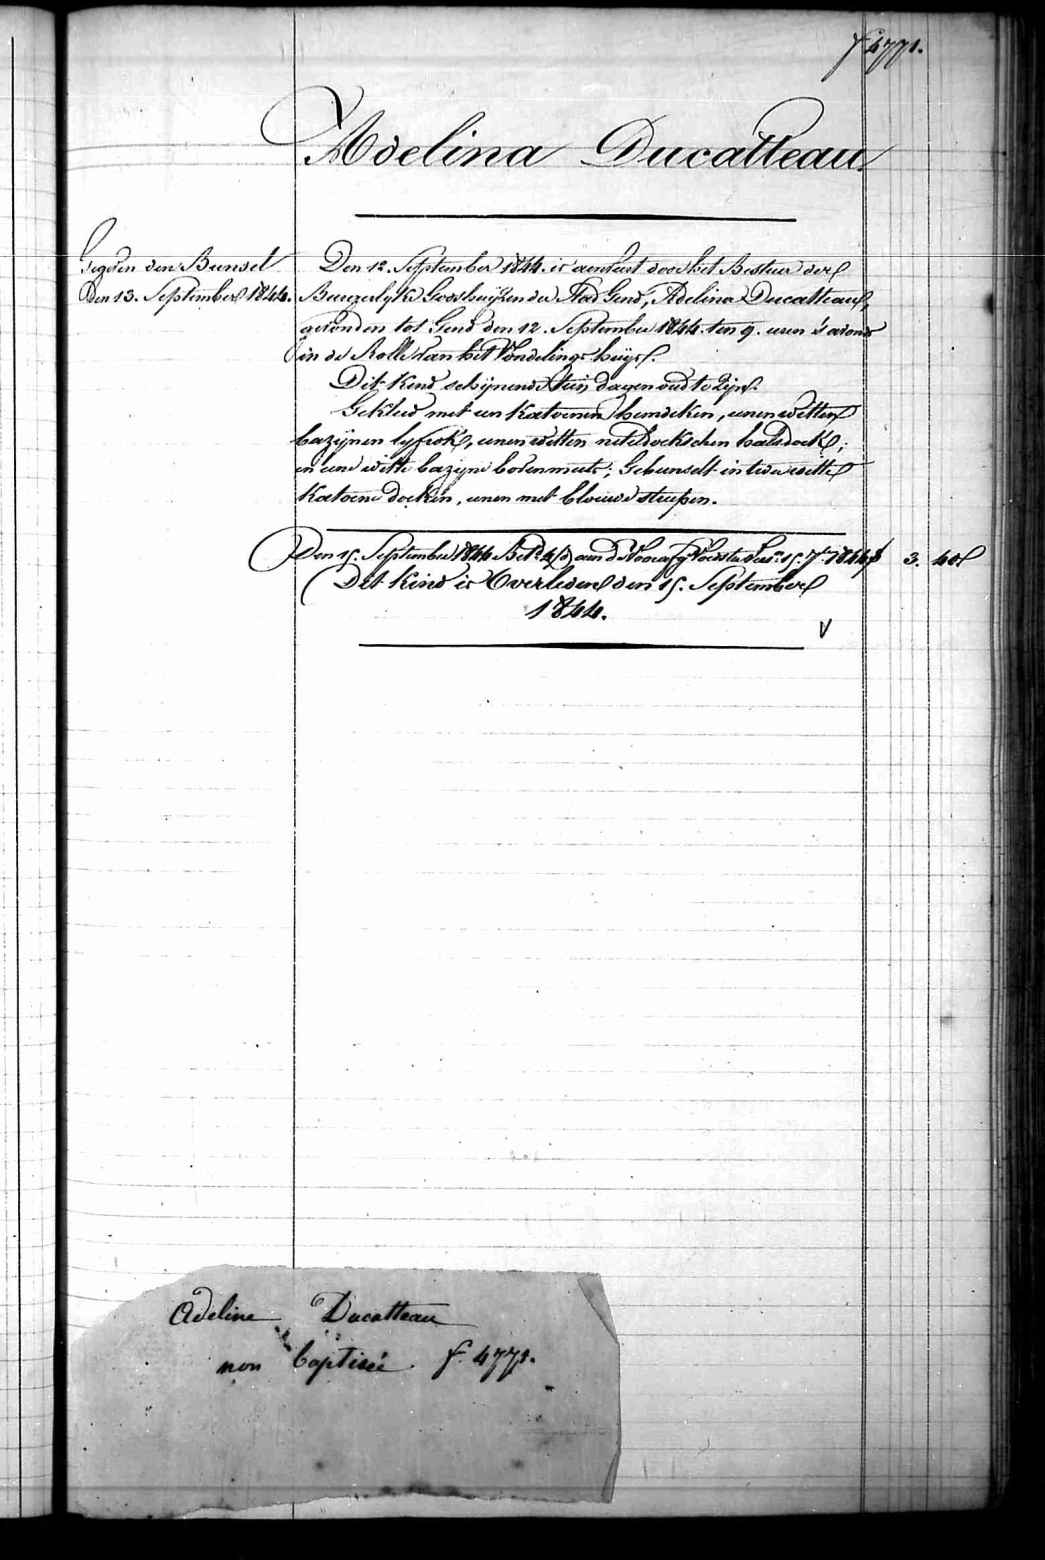 f 4771.
Adelina Ducatteau.
Gegeven den Bunsel
den 13. September 1844.
Den 12. September 1844. is aenveert door het Bestuer der
Burgerlyke Godshuijzen der Stad Gend, Adelina Ducatteau,
gevonden tot Gend den 12. September 1844. ten 9. uren 's avonds
in de Rolle van het Vondelings huijs.
Dit Kind schijnende tien dagen oud te zijn.
Gekleed met een Katoenen hemdeken, eenen witten
bazijnen lyfrok, eenen witten neteldoekschen halsdoek;
en eene witte bazijne bovenmuts; Gebunselt in twee witte
Katoene doeken, eenen met blauwe streepen.
Den 15. September 1844 Bet. aen d 15. 7. 1844 f 3. 40
Dit Kind is Overleden den 15. September
1844.
V
Adeline Ducatteau
non baptisée. f. 4771.